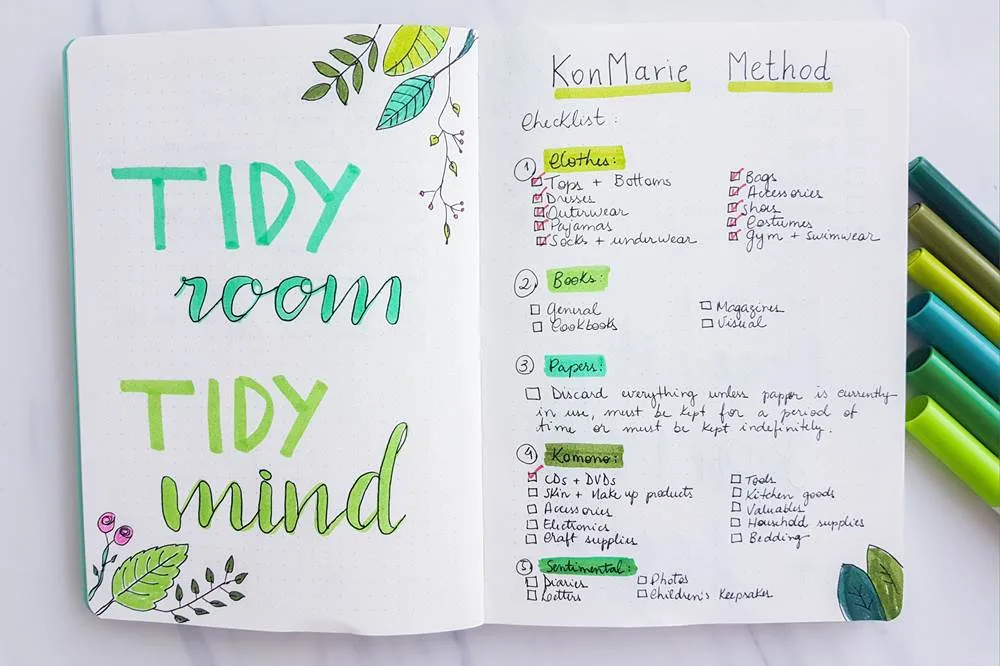 TIDY
room
TIDY
mind
KonMarie Method
Checklist:
1 Clothes:
Tops + Bottoms
Dresses
Outerwear
Pajamas
Socks + underwear
Bags
Accessories
Shoes
Costumes
Gym + swimwear
2. Books:
General
Cookbooks
Magazines
Visual
3 Papers:
Discard everything unless papper is currently
in use, must be kept for a period of
time or must be kept indefinitely.
4 Komono:
CDs + DVDs
Skin + Make up products
Accessories
Electionics
Craft supplies
Tools
Kitchen goods
Valuables
Household supplies
Bedding
5 Sentimental:
Diaries
Letters
Photos
Children's Keepsakes